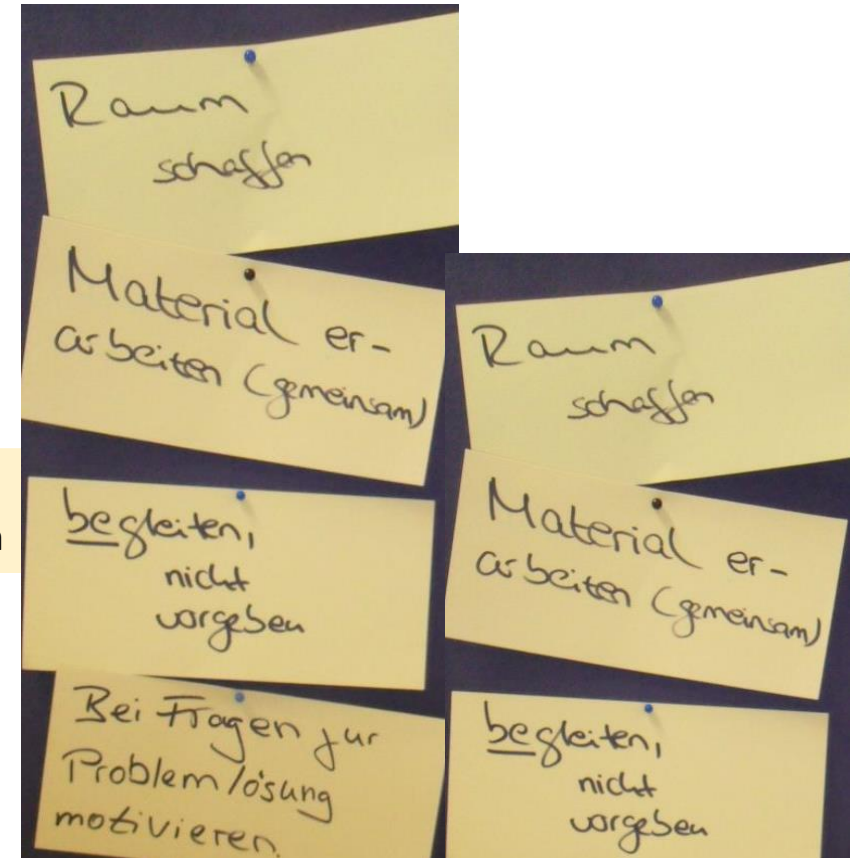 Raum
schaffen
Material er-
arbeiten (gemeinsam)
begleiten,
nicht
vorgeben
Bei Fragen zur
Problemlösung
motivieren.
Raum
schaffen
Material er-
arbeiten (gemeinsam)
begleiten,
nicht
vorgeben